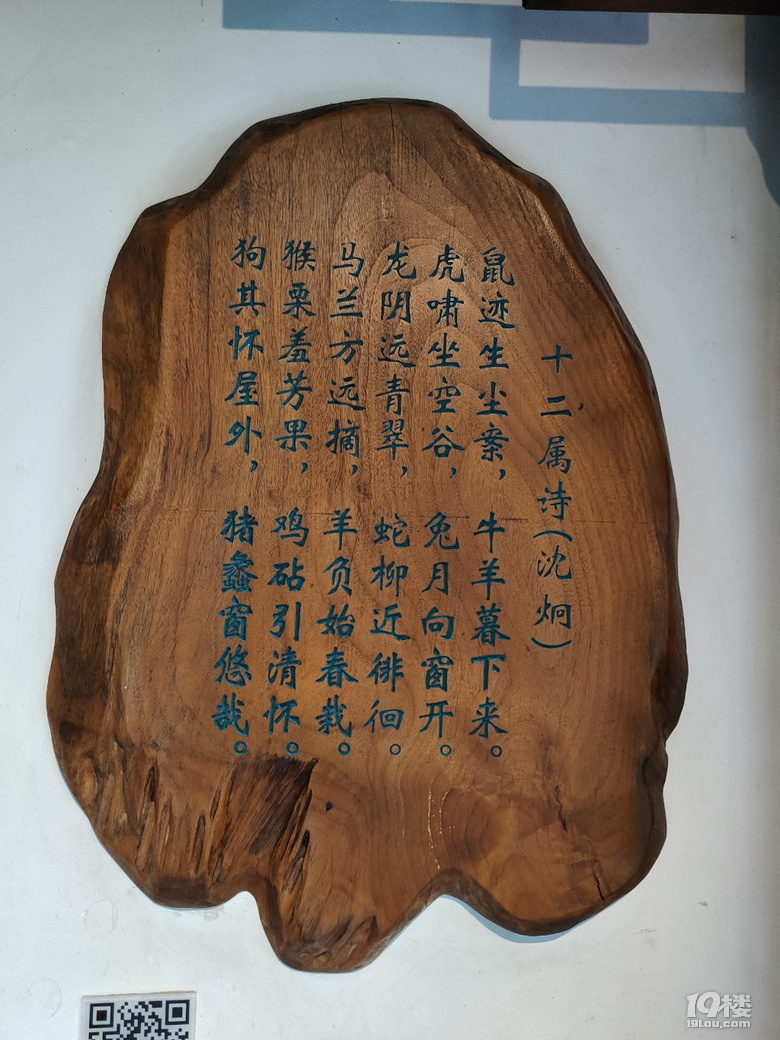 十二属诗(沈炯)
鼠迹生尘案，牛羊暮下来。
虎啸坐空谷，兔月向窗开。
龙阴远青翠，蛇柳近徘徊。
马兰方远摘，羊负始春栽。
猴栗羞芳果，鸡砧引清怀。
狗其怀屋外，猪蠡窗悠哉。
19楼
19lou.com